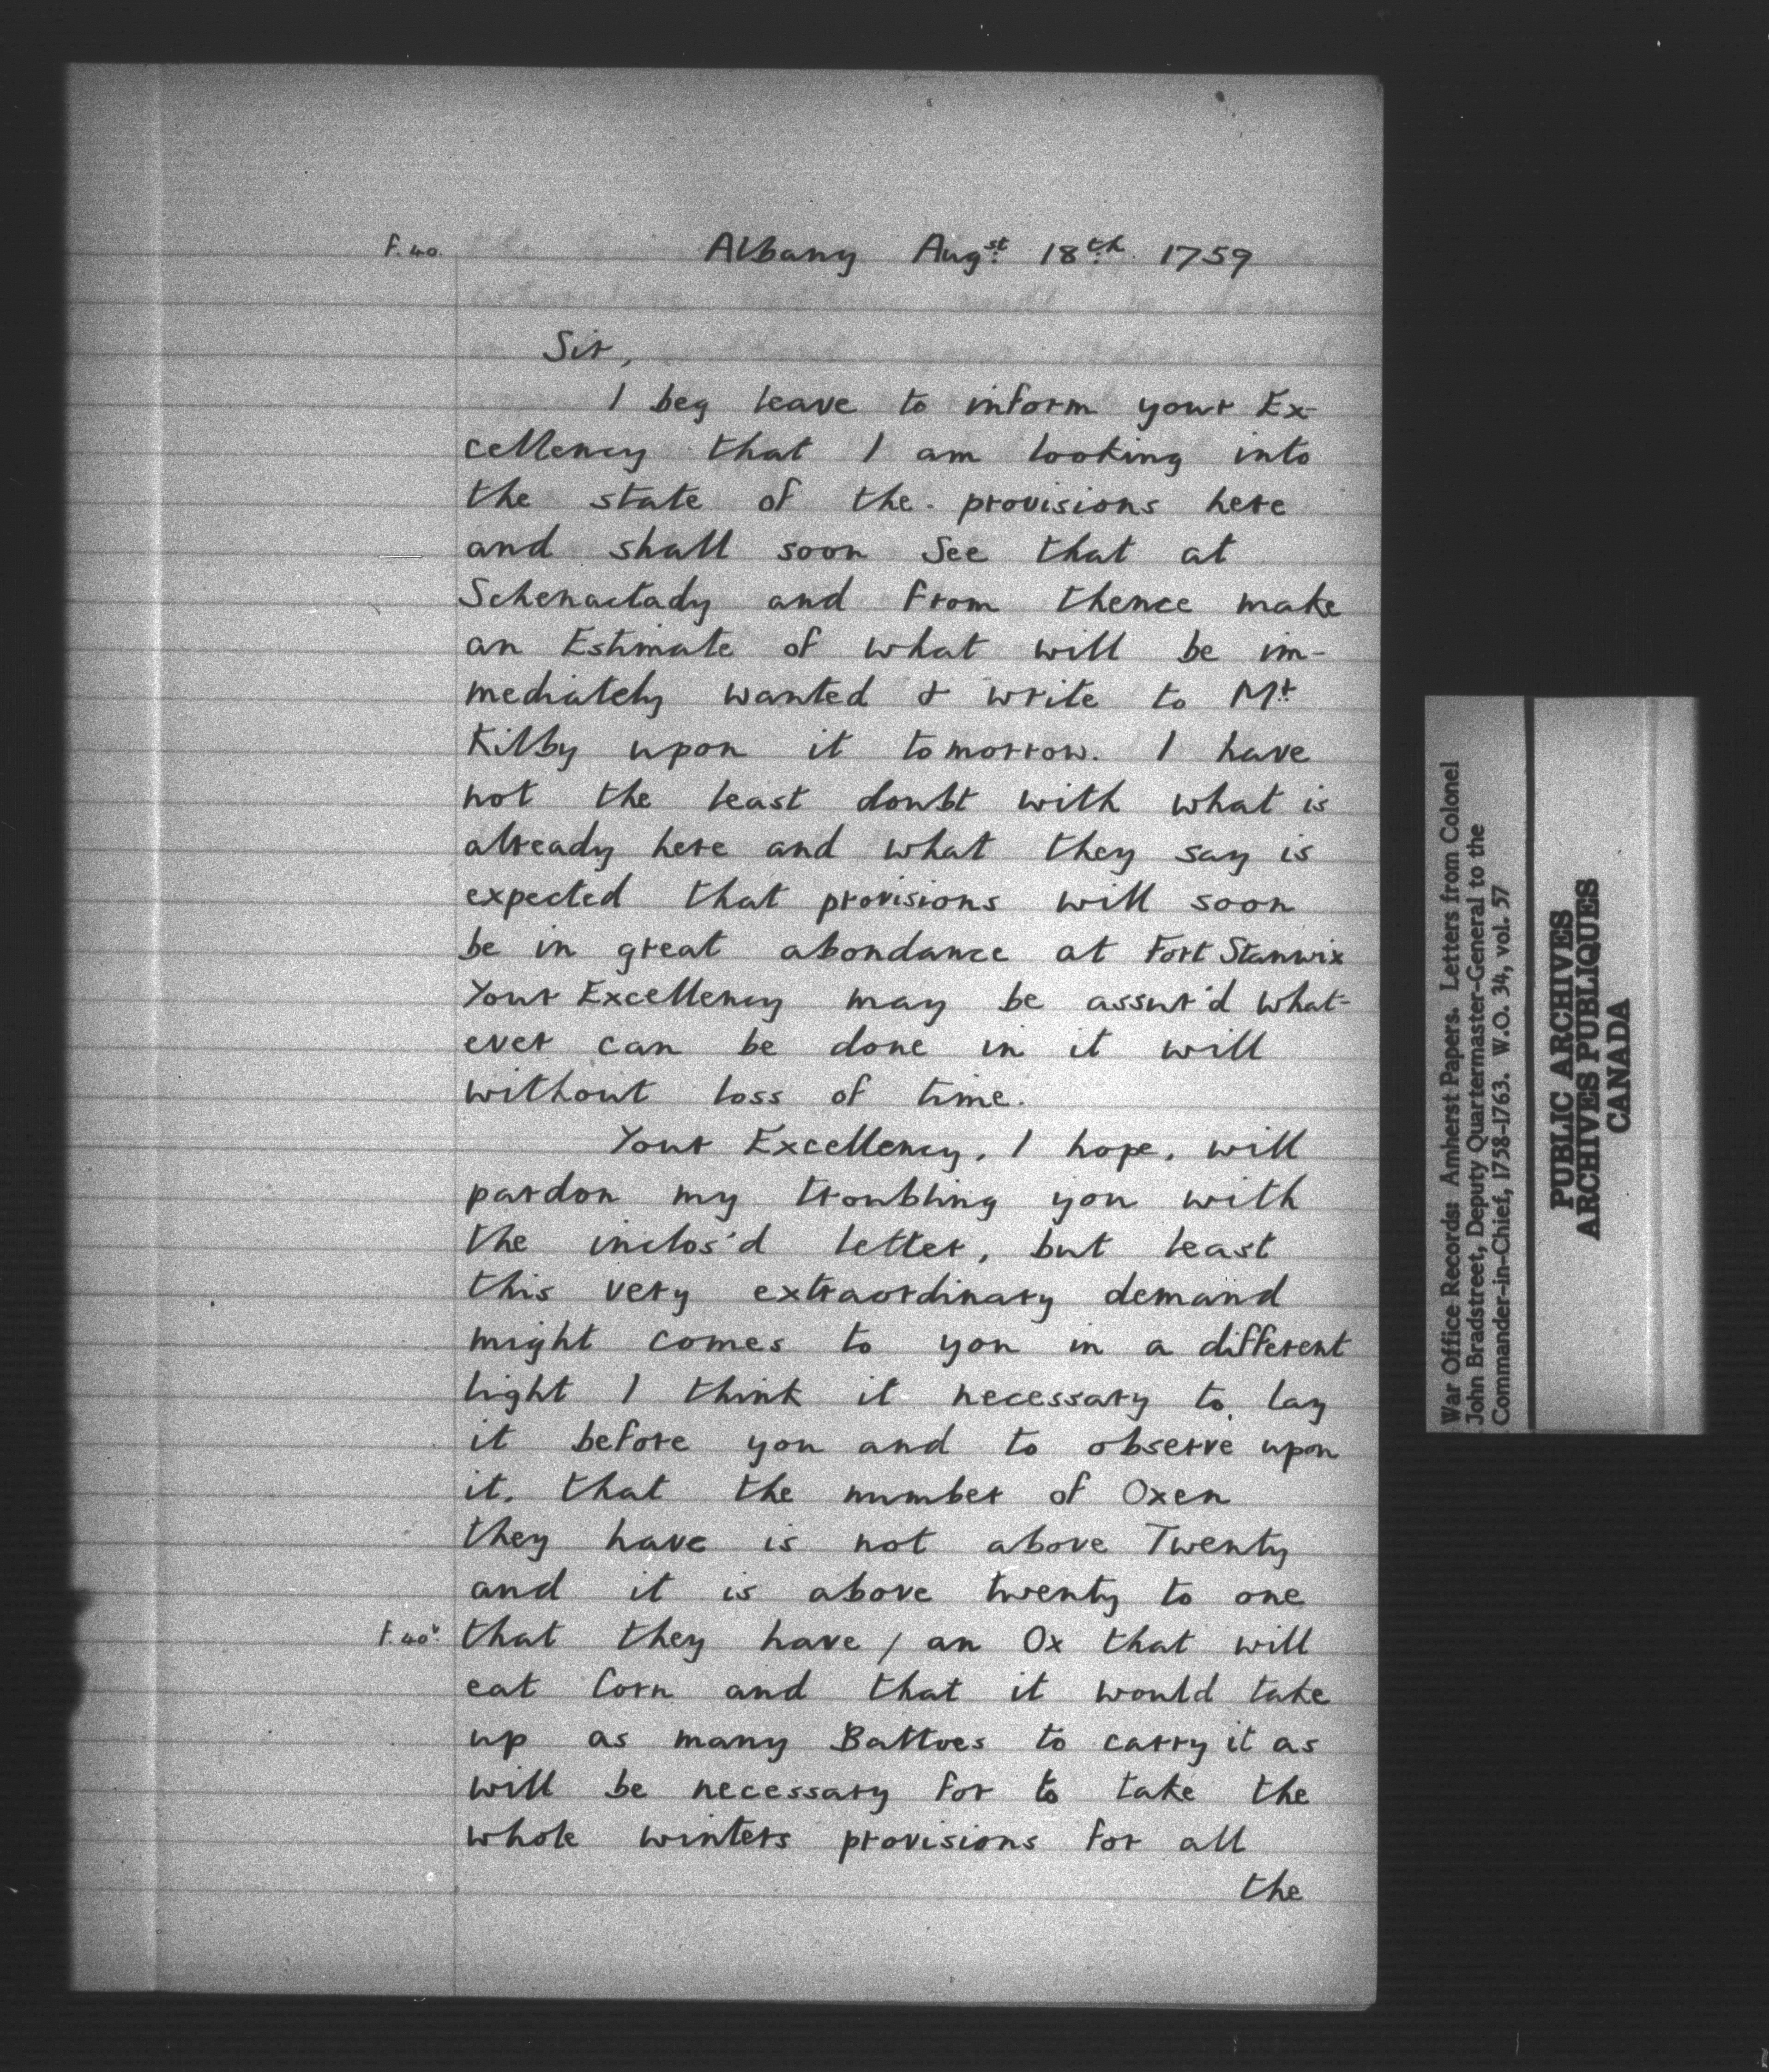 F. 40. Albany Augst. 18th. 1759
Sir,
I beg leave to inform your Ex-
cellency that I am looking into
the state of the provisions here
and shall soon See that at
Schenactady and from thence make
an Estimate of what will be im-
mediately wanted & write to Mr.
Kilby upon it tomorrow. I have
not the least doubt with what is
already here and what they say is
expected that provisions will soon
be in great abondance at Fort Stanwix
Your Excellency may be assur'd what-
ever can be done in it will
without loss of time.
Your Excellency, I hope, will
pardon my troubling you with
the inclos'd letter, but least
this very extraordinary demand
might comes to you in a different
light I think it necessary to lay
it before you and to observe upon
it, that the number of Oxen
they have is not above Twenty
and it is above twenty to one
F. 40v. that they have / an Ox that will
eat Corn and that it would take
up as many Battoes to carry it as
will be necessary for to take the
whole winters provisions for all
the
War Office Records: Amherst Papers. Letters from Colonel
John Bradstreet, Deputy Quartermaster-General to the
Commander-in-Chief, 1758-1763. W.O. 34, vol. 57
PUBLIC ARCHIVES
ARCHIVES PUBLIQUES
CANADA